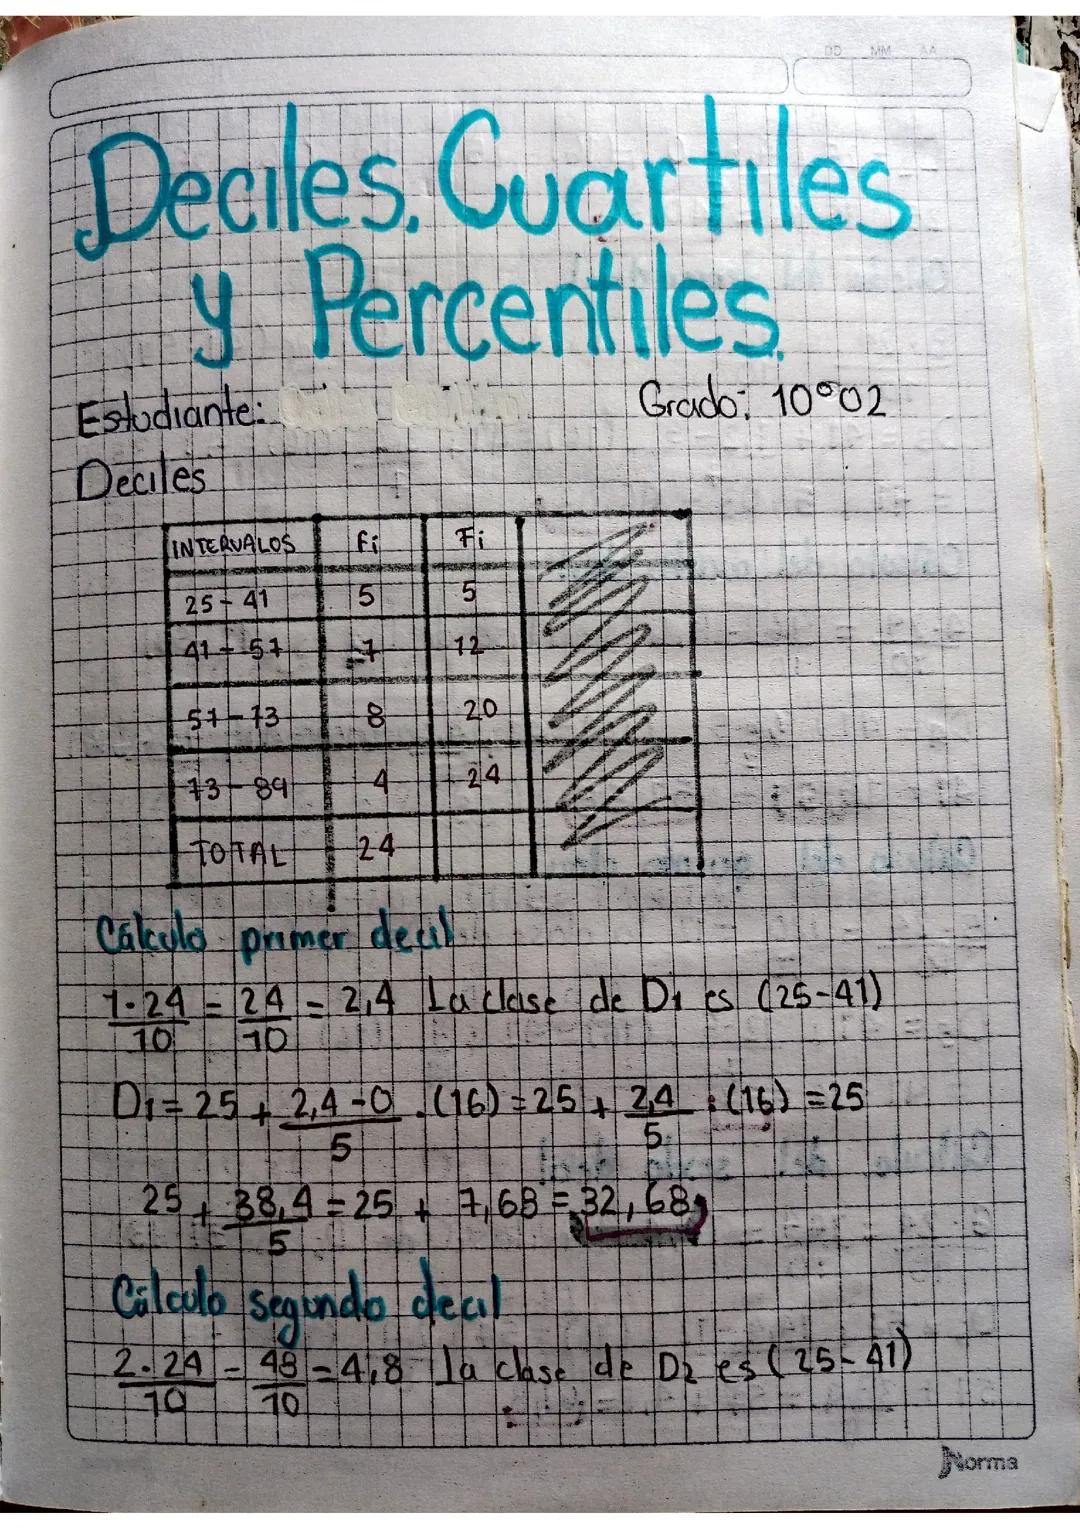 DD MM AA
Deciles, Cuartiles
y Percentiles.
Estudiante:
Grado: 10°02
Deciles
INTERVALOS fi Fi
25-41 5 5
41-57 7 12
57-73 8 20
73-89 4 24
TOTAL 24
Cálculo primer decil
1·24/10 = 24/10 = 2,4 La clase de D1 es (25-41)
D1 = 25 + 2,4-0/5 · (16) = 25 + 2,4/5 · (16) = 25
25 + 38,4/5 = 25 + 7,68 = 32,68
Cálculo segundo decil
2·24/10 = 48/10 = 4,8 la clase de D2 es (25-41)
Norma